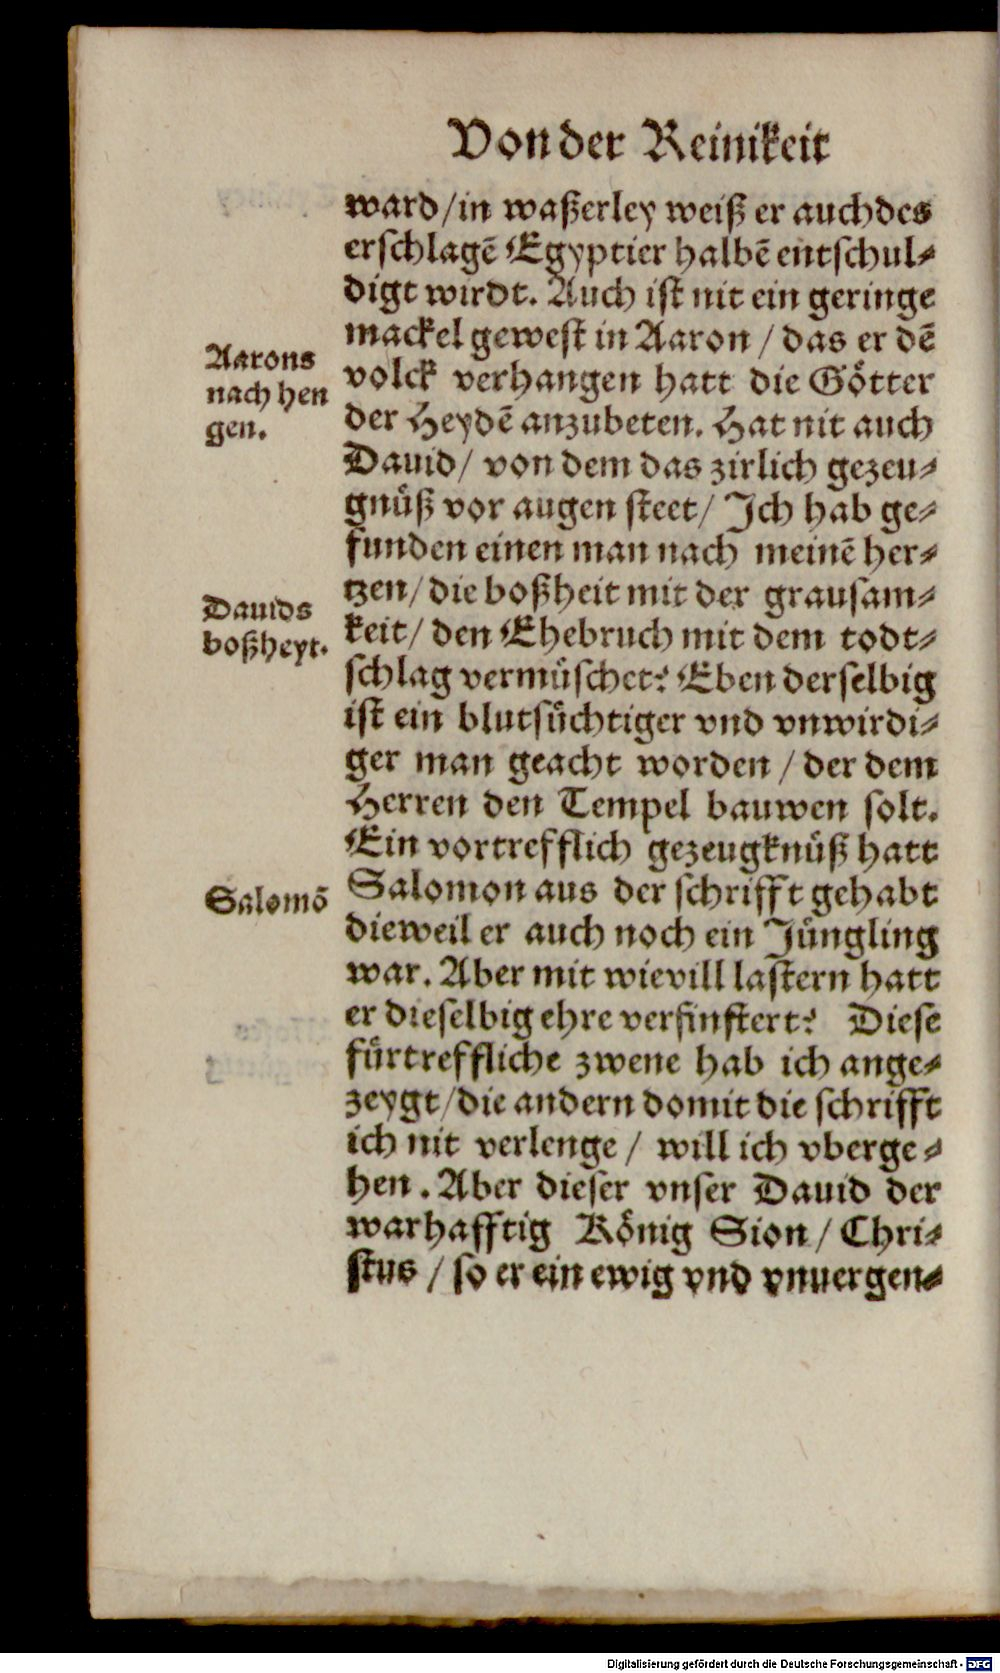 Von der Reinikeit
ward/in waßerley weiß er auch des
erschlagẽ Egyptier halbẽ entschul⸗
digt wirdt. Auch ist nit ein geringe
mackel gewest in Aaron / das er dẽ
Aarons
nach hen
gen.
volck verhangen hatt die Götter
der Heydẽ anzubeten. Hat nit auch
Dauid/ von dem das zirlich gezeu⸗
gnüß vor augen steet/ Ich hab ge⸗
funden einen man nach meinẽ her⸗
tzen/ die boßheit mit der grausam⸗
Dauids
boßheyt.
keit/ den Ehebruch mit dem todt⸗
schlag vermüschet? Eben derselbig
ist ein blutsüchtiger vnd vnwirdi⸗
ger man geacht worden / der dem
Herren den Tempel bauwen solt.
Ein vortrefflich gezeugknüß hatt
Salomõ
Salomon aus der schrifft gehabt
dieweil er auch noch ein Jüngling
war. Aber mit wievill lastern hatt
er dieselbig ehre verfinstert? Diese
fürtreffliche zwene hab ich ange⸗
zeygt/die andern domit die schrifft
ich nit verlenge / will ich vberge⸗
hen. Aber dieser vnser Dauid der
warhafftig König Sion / Chri⸗
stus / so er ein ewig vnd vnuergen⸗
Digitalisierung gefördert durch die Deutsche Forschungsgemeinschaft - DFG